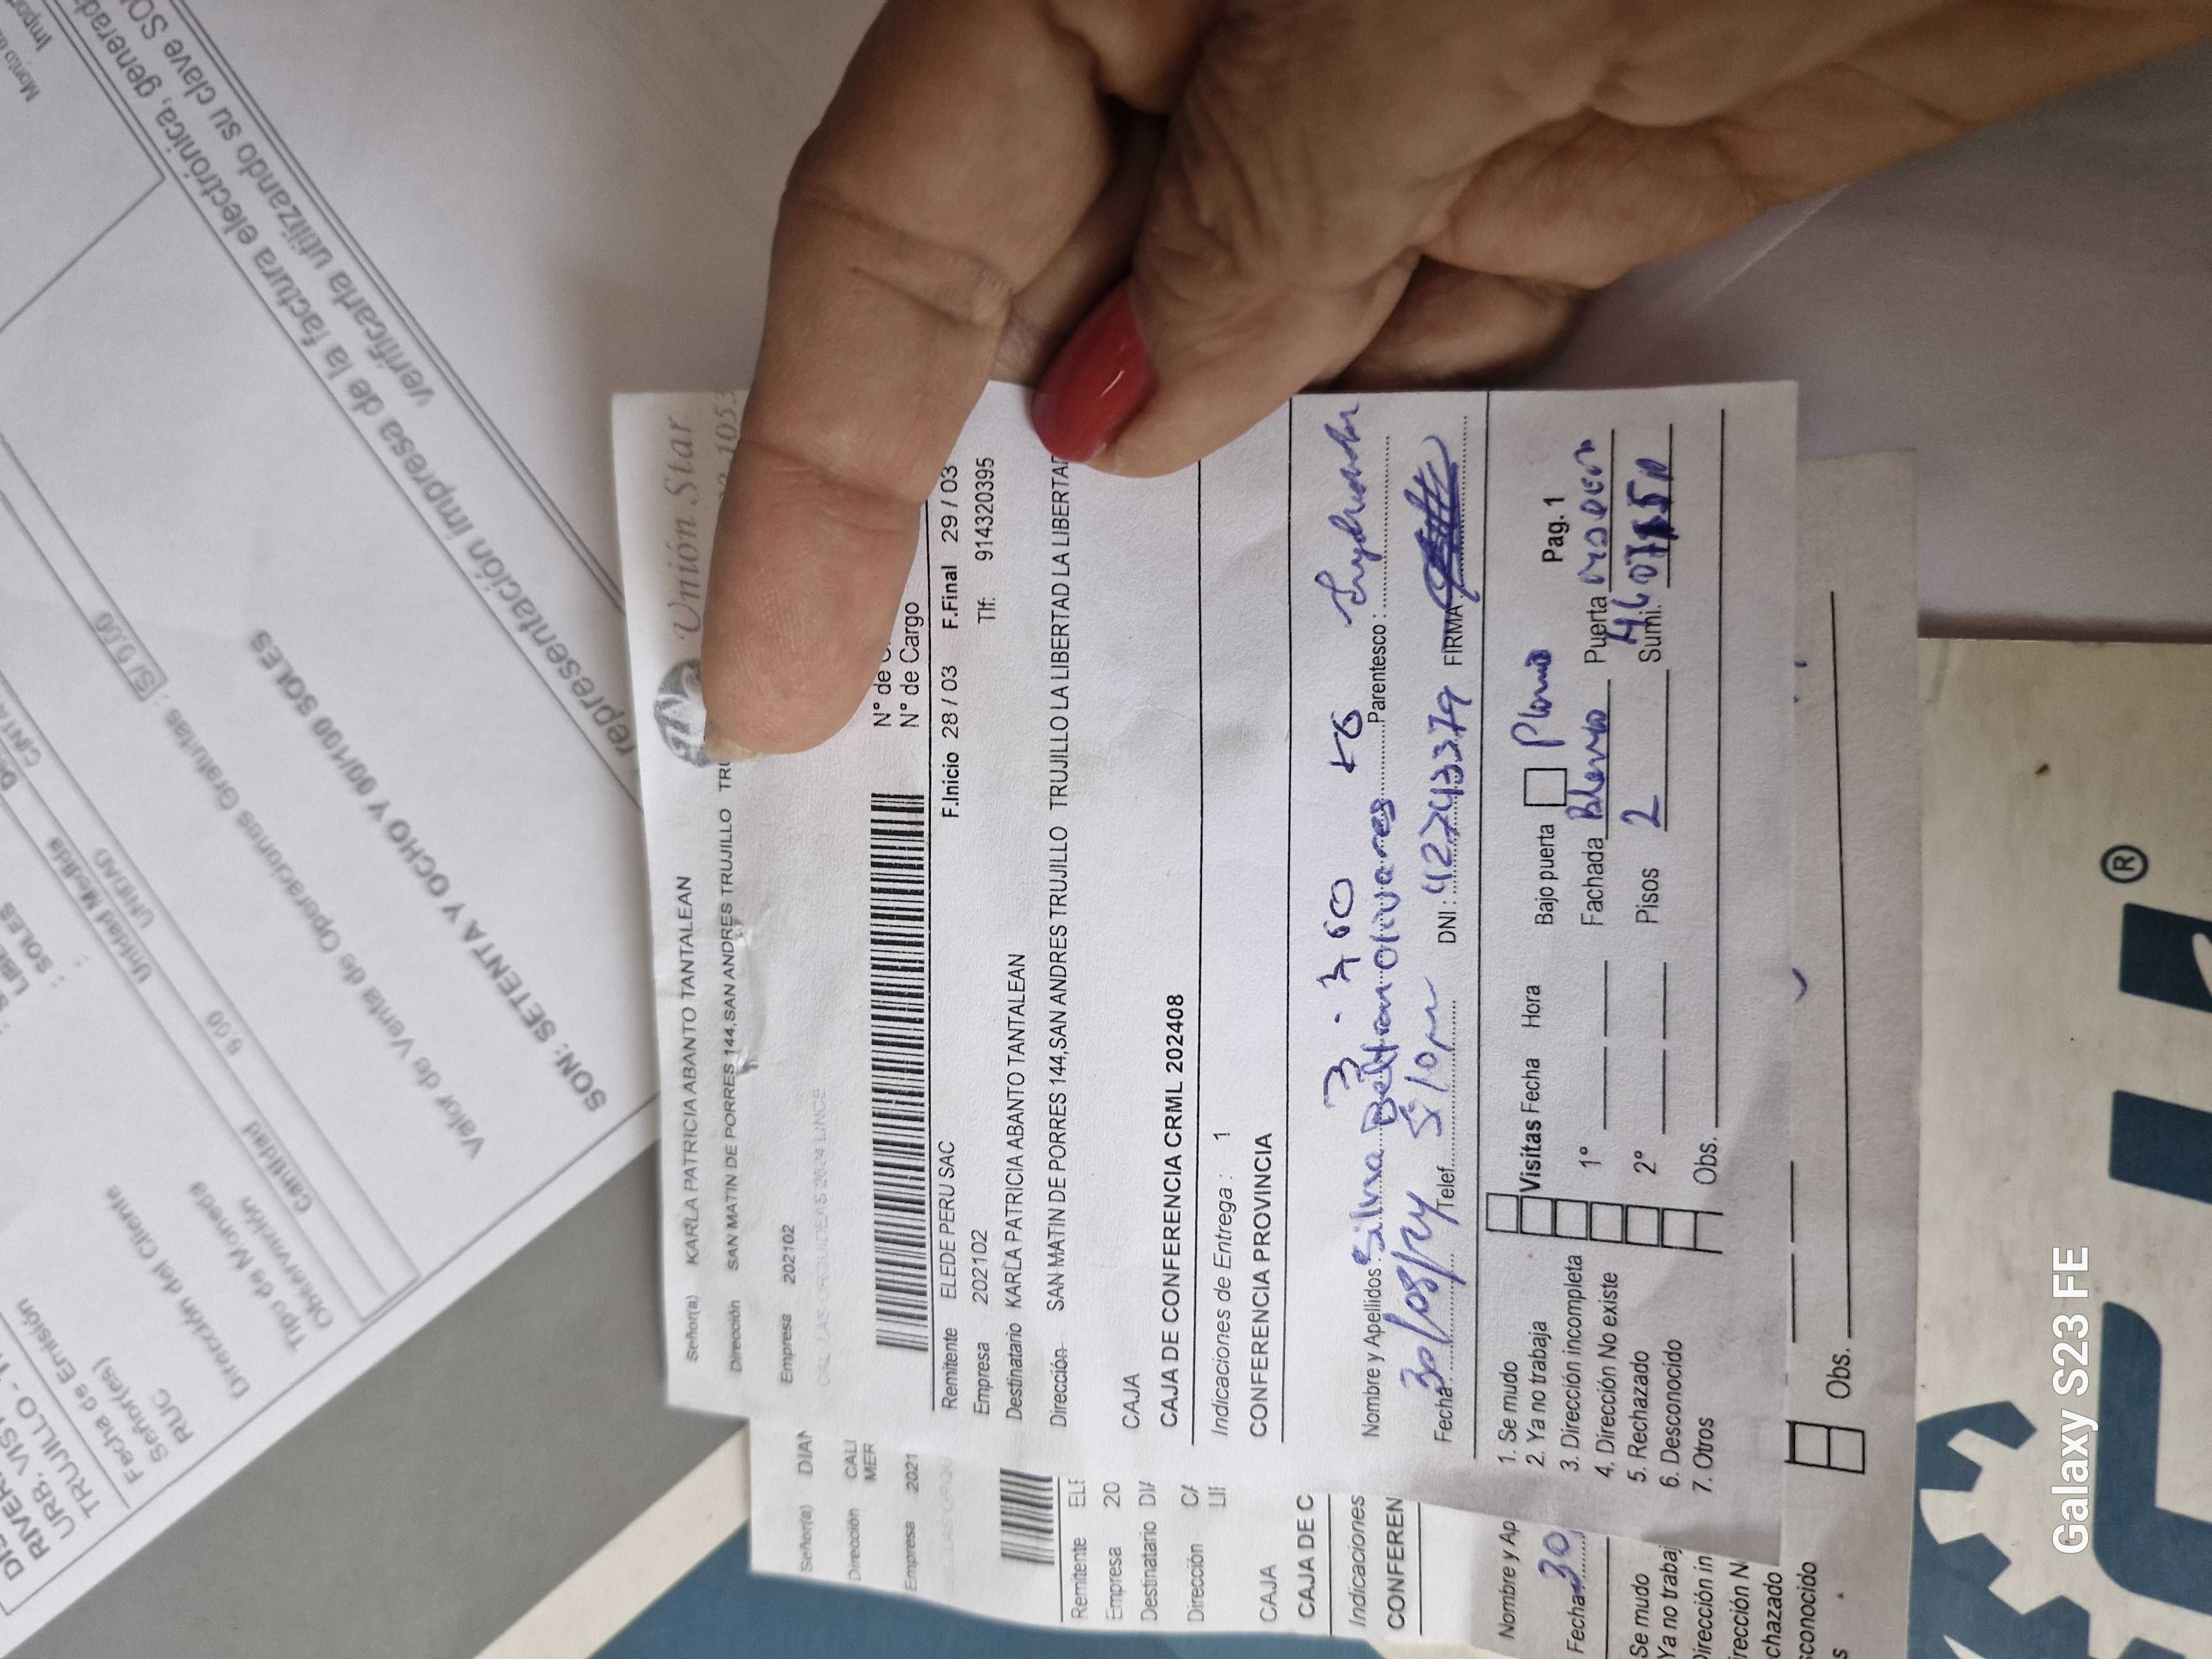 Unión Star
Señor(a) KARLA PATRICIA ABANTO TANTALEAN
Dirección SAN MATIN DE PORRES 144,SAN ANDRES TRUJILLO
Empresa 202102
N° de
N° de Cargo
Remitente ELEDE PERU SAC F.Inicio 28 / 03 F.Final 29 / 03
Empresa 202102 Tlf: 914320395
Destinatario KARLA PATRICIA ABANTO TANTALEAN
Dirección SAN MATIN DE PORRES 144,SAN ANDRES TRUJILLO TRUJILLO LA LIBERTAD LA LIBERTAD LA LIBERTAD
CAJA
CAJA DE CONFERENCIA CRML 202408
Indicaciones de Entrega : 1
CONFERENCIA PROVINCIA
Nombre y Apellidos : Silvia Beltran Olivares Parentesco :
Fecha 30/08/24 Telef. 5:10 pm DNI : 42743379 FIRMA
1. Se mudo
2. Ya no trabaja
3. Dirección incompleta
4. Dirección No existe
5. Rechazado
6. Desconocido
7. Otros
Visitas Fecha Hora
1°
2°
Obs.
Bajo puerta Plomo Pag. 1
Fachada Puerta
Pisos 2 Sumi.
Señor(a)
Dirección
Empresa 2021
Remitente
Empresa 20
Destinatario
Dirección
CAJA
CAJA DE C
Indicaciones
CONFEREN
Nombre y Ap
Fecha 30
Se mudo
Ya no trabaj
Obs.
Fecha de Emisión
Señor(es)
RUC
Dirección del Cliente
Tipo de Moneda
Observación
: SOLES
Cantidad Unidad Medida
6.00 UNIDAD
Valor de Venta de Operaciones Gratuitas : S/ 0.00
SON: SETENTA Y OCHO Y 00/100 SOLES
representación impresa de la factura electrónica, generad
verificarla utilizando su clave SO
®
Galaxy S23 FE